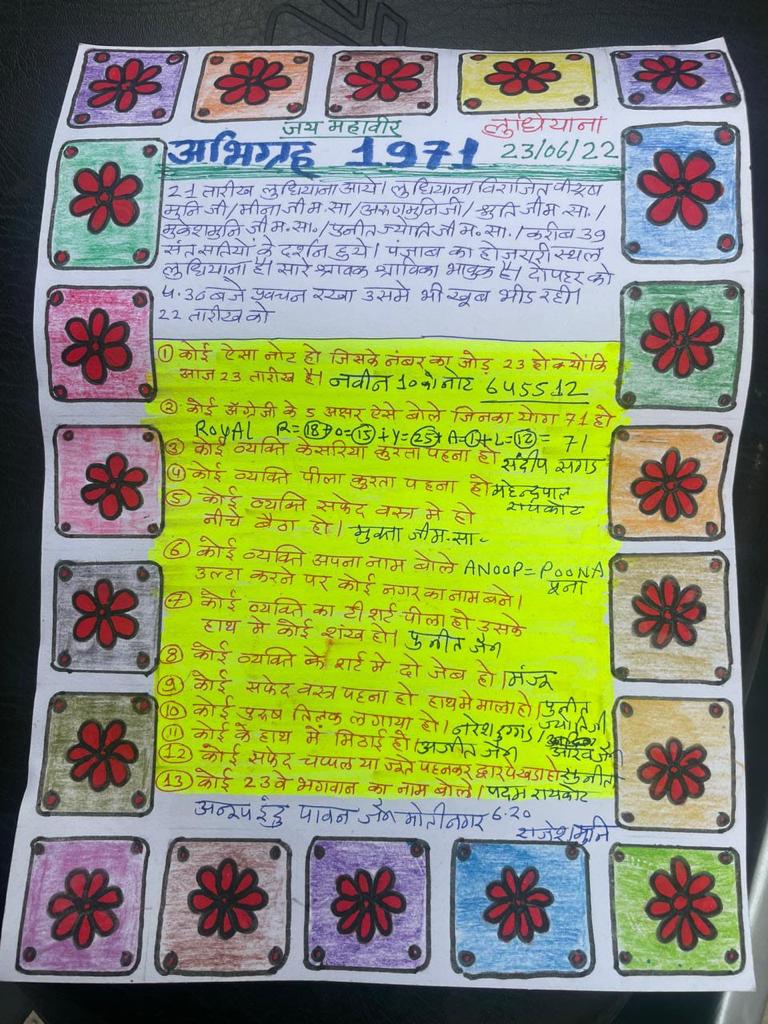 जय महावीर
लुधियाना
अभिग्रह 1971
23/06/22
21 तारीख लुधियाना आये। लुधियाना विराजित पीयूष
मुनि जी/मीना जी म.सा/अरुण मुनि जी/ श्रुति जी म. सा./
मुकेश मुनि जी म.सा०/पुनीत ज्योति जी म. सा./ करीब 39
संत सतियों के दर्शन हुये। पंजाब का होजरी स्थल
लुधियाना है। सारे श्रावक श्राविका भावुक है। दोपहर को
4.30 बजे प्रवचन रखा उसमे भी खूब भीड रही।
22 तारीख को
① कोई ऐसा नोट हो जिसके नंबर का जोड़ 23 हो क्योंकि
आज 23 तारीख है। नवीन 10 का नोट 645512
② कोई अंग्रेजी के 5 अक्षर ऐसे बोले जिनका योग 71 हो
ROYAL R=18+O=15+Y=25+A=1+L=12= 71
③ कोई व्यक्ति केसरिया कुरता पहना हो संदीप
④ कोई व्यक्ति पीला कुरता पहना हो महेन्द्रपाल
रायकोट
⑤ कोई व्यक्ति सफेद वस्त्र मे हो
नीचे बैठा हो। मुक्ता जी म.सा-
⑥ कोई व्यक्ति अपना नाम बोले ANOOP=POONA
उल्टा करने पर कोई नगर का नाम बने। पूना
⑦ कोई व्यक्ति का टी शर्ट पीला हो उसके
हाथ मे कोई शंख हो। पुनीत जैन
⑧ कोई व्यक्ति के शर्ट मे दो जेब हो। मंजू
⑨ कोई सफेद वस्त्र पहना हो हाथ मे माला हो। पुनीत
ज्योति जी
⑩ कोई पुरुष तिलक लगाया हो। नरेश
⑪ कोई के हाथ में मिठाई हो। अजीत जैन
⑫ कोई सफेद चप्पल या जूते पहनकर द्वार पे खडा हो
⑬ कोई 23 वे भगवान का नाम बोले। पदम रायकोट
पावन जैन मोतीनगर 6.20
राजेश मुनि